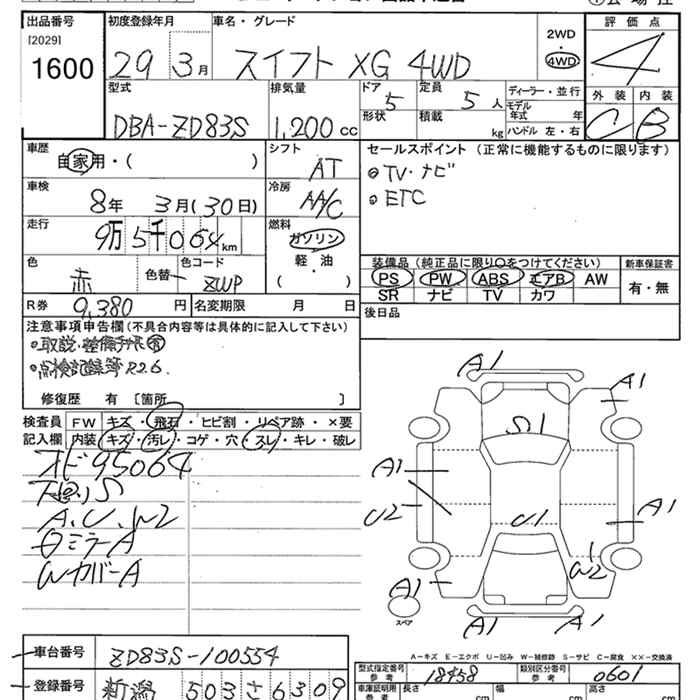 出品番号 初度登録年月 車名・グレード 評価点
[2029]
1600
29 3月 スイフト XG 4WD
2WD
・
4WD
4
型式 排気量 ドア 定員 ディーラー・並行
DBA-ZD83S 1,200cc 5 5人
モデル年式 年
形状 積載 kg ハンドル 左・右
外装 内装
C B
車歴 自家用・( )
シフト AT
セールスポイント (正常に機能するものに限ります)
TV・ナビ
ETC
車検 8年 3月(30日)
冷房 AA/C
走行 9万5千064km
燃料 ガソリン
軽・油
( )
色 赤 色替 カラーコード ZWP
装備品 (純正品に限り○をつけてください) 新車保証書
PS PW ABS エアB AW
SR ナビ TV カワ
有・無
R券 9,380円 名変期限 月 日
後日品
注意事項申告欄(不具合内容等は具体的に記入して下さい)
点検記録簿 R2.6
修復歴 有 [箇所 ]
検査員記入欄
FW キズ・飛石・ヒビ割・リペア跡・×要
内装 キズ・汚レ・コゲ・穴・スレ・キレ・破レ
オド95064
下廻りS
A、U、W2
ミラーA
WカバーA
A1
A1
S1
A1
U2
U1
A1
W2
A1
A1 A1
スペア
A-キズ E-エクボ U-凹み W-補修跡 S-サビ C-腐食 ××-交換済
車台番号 ZD83S-100554
型式指定番号 参考 18458 類別区分番号 参考 0601
登録番号 新潟 503 さ 6309
車庫証明用 参考 長さ cm 幅 cm 高さ cm